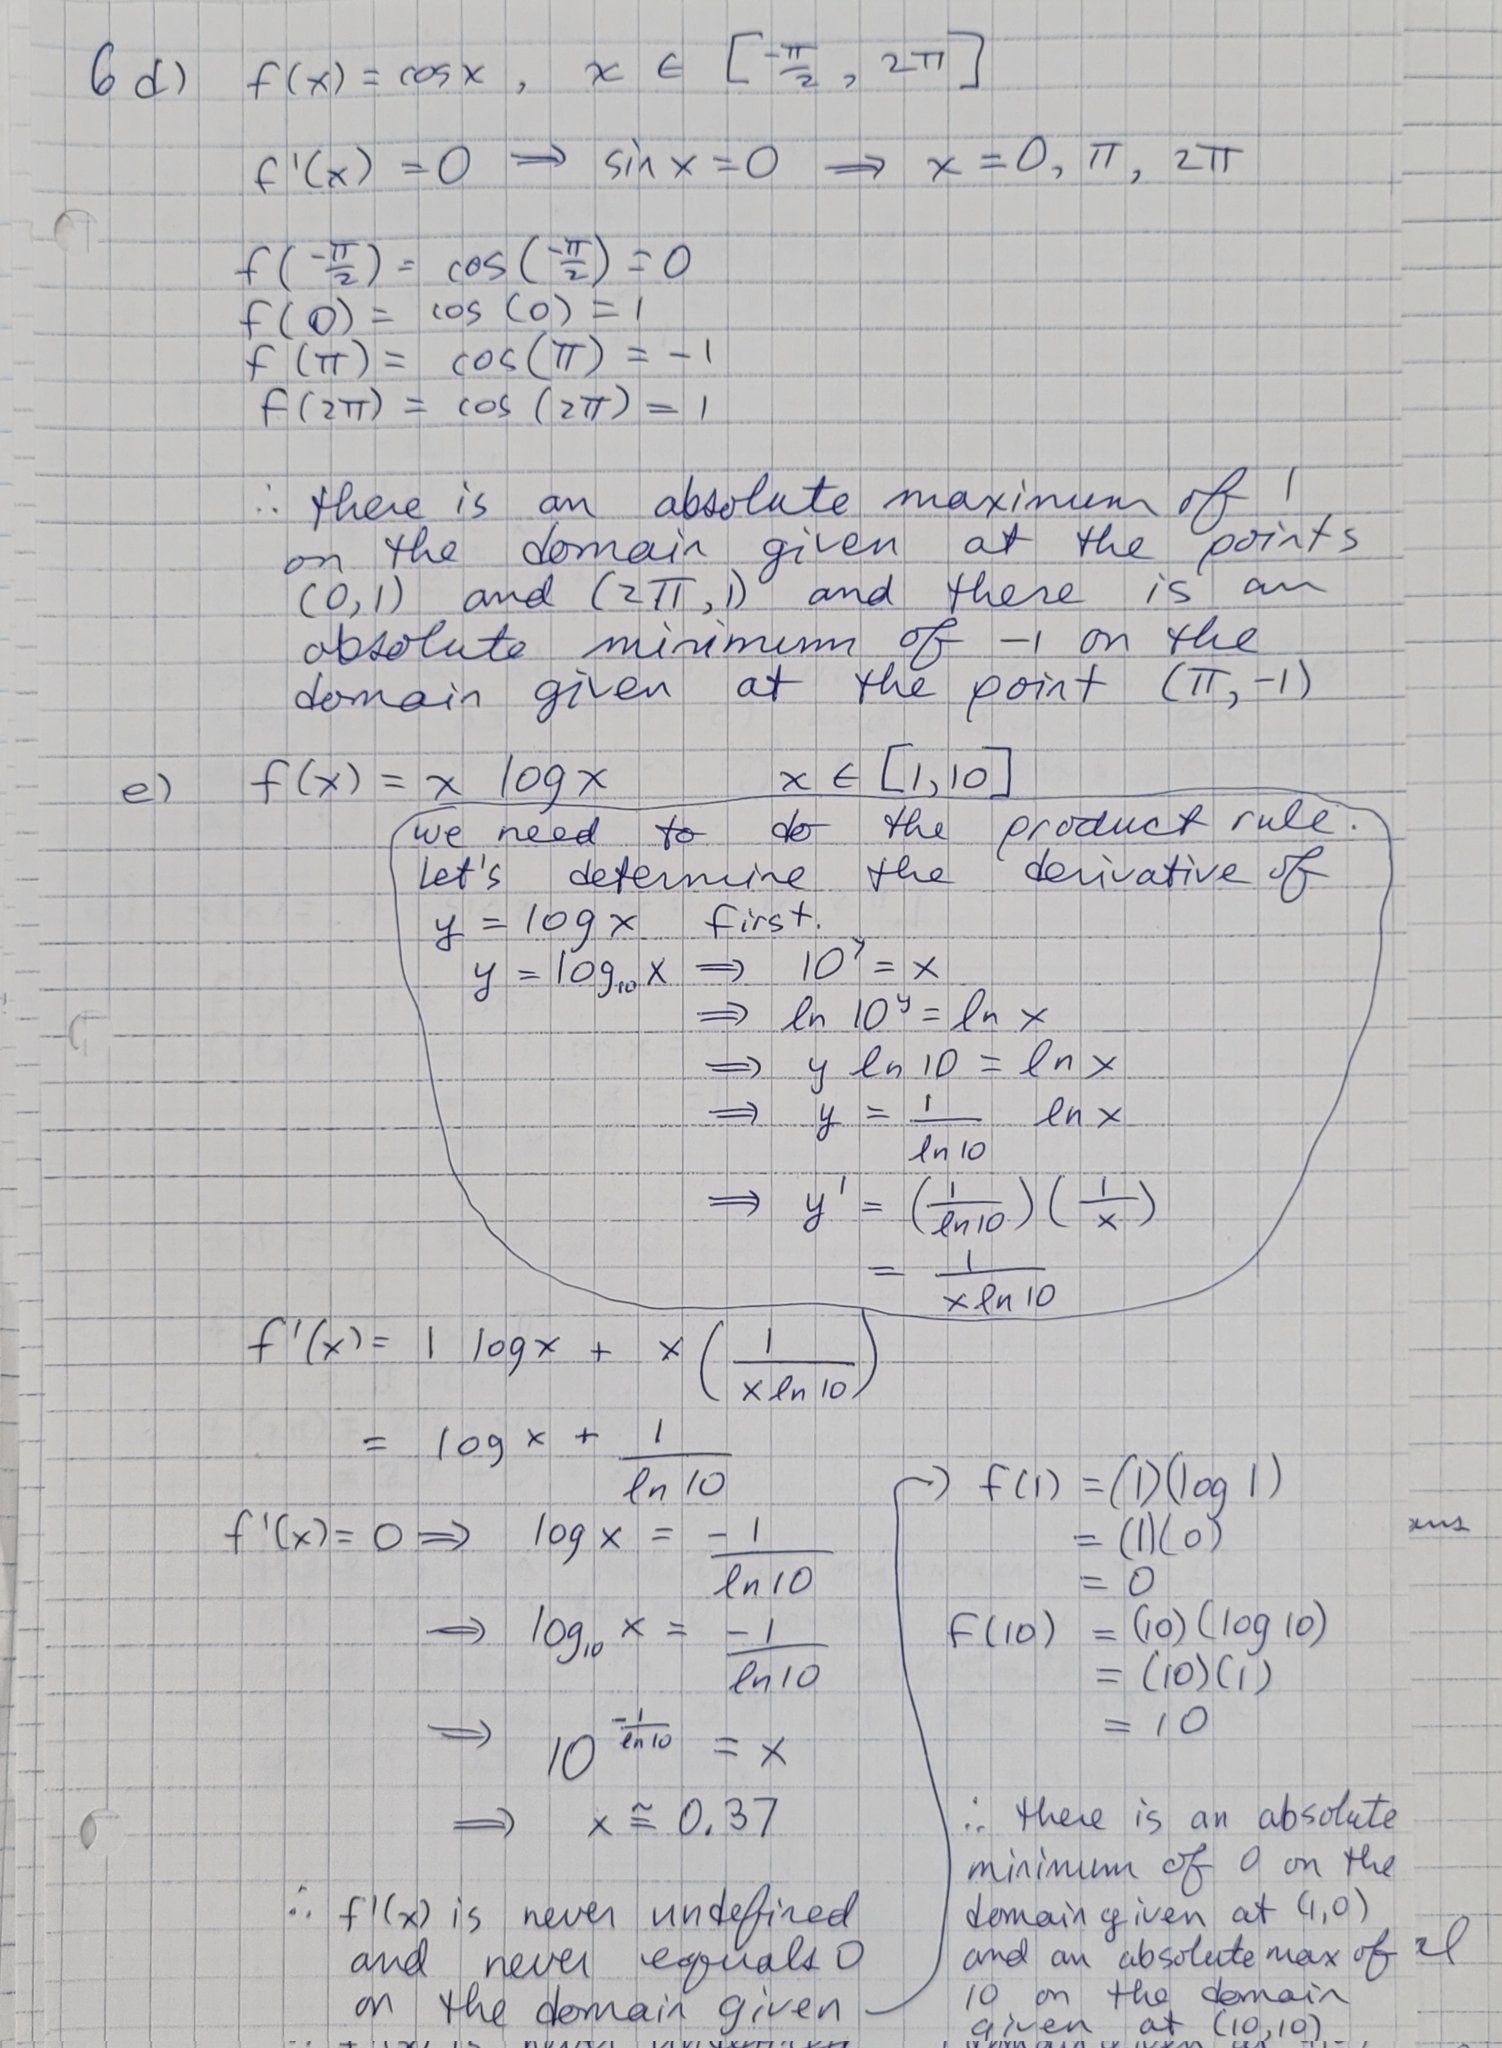 6 d) f(x) = cos x , x ∈ [-π/2, 2π]
f'(x) = 0 ⟹ sin x = 0 ⟹ x = 0, π, 2π
f(-π/2) = cos(-π/2) = 0
f(0) = cos(0) = 1
f(π) = cos(π) = -1
f(2π) = cos(2π) = 1
∴ there is an absolute maximum of 1
on the domain given at the points
(0,1) and (2π,1) and there is an
absolute minimum of -1 on the
domain given at the point (π,-1)
e) f(x) = x log x x ∈ [1,10]
we need to do the product rule.
Let's determine the derivative of
y = log x first.
y = log₁₀ x ⟹ 10^y = x
⟹ ln 10^y = ln x
⟹ y ln 10 = ln x
⟹ y = 1/ln 10 ln x
⟹ y' = (1/ln 10)(1/x)
= 1/x ln 10
f'(x) = 1 log x + x(1/x ln 10)
= log x + 1/ln 10
f'(x) = 0 ⟹ log x = -1/ln 10
⟹ log₁₀ x = -1/ln 10
⟹ 10^(-1/ln 10) = x
⟹ x ≅ 0.37
∴ f'(x) is never undefined
and never equals 0
on the domain given
→ f(1) = (1)(log 1)
= (1)(0)
= 0
f(10) = (10)(log 10)
= (10)(1)
= 10
∴ there is an absolute
minimum of 0 on the
domain given at (1,0)
and an absolute max of
10 on the domain
given at (10,10)